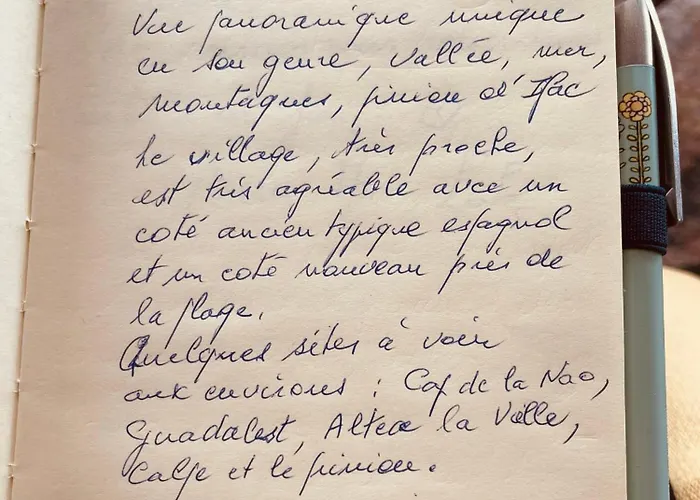 Vue panoramique unique
en son genre, vallée, mer,
montagnes, pinion d'Ifac
Le village, très proche,
est très agréable avec un
coté ancien typique espagnol
et un coté nouveau près de
la plage.
Quelques sites à voir
aux environs : Cap de la Nao,
Guadalest, Altea la Vella,
Calpe et le pinion.